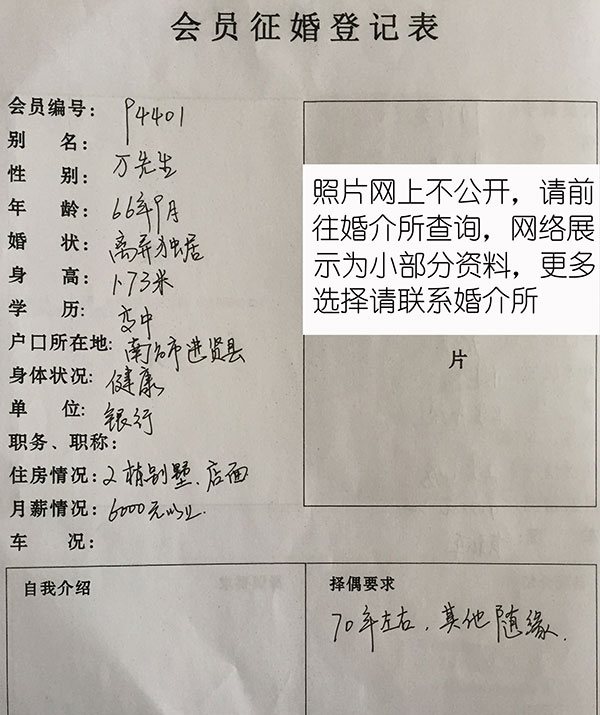 会员征婚登记表
会员编号: P4401
别 名:
性 别: 万先生
年 龄: 66年9月
婚 状: 离异独居
身 高: 1.73米
学 历: 高中
户口所在地: 南昌市进贤县
身体状况: 健康
单 位: 银行
职务、职称:
住房情况: 2栋别墅、店面
月薪情况: 6000元以上.
车 况:
照片网上不公开，请前
往婚介所查询，网络展
示为小部分资料，更多
选择请联系婚介所
片
自我介绍
择偶要求
70年左右，其他随缘.